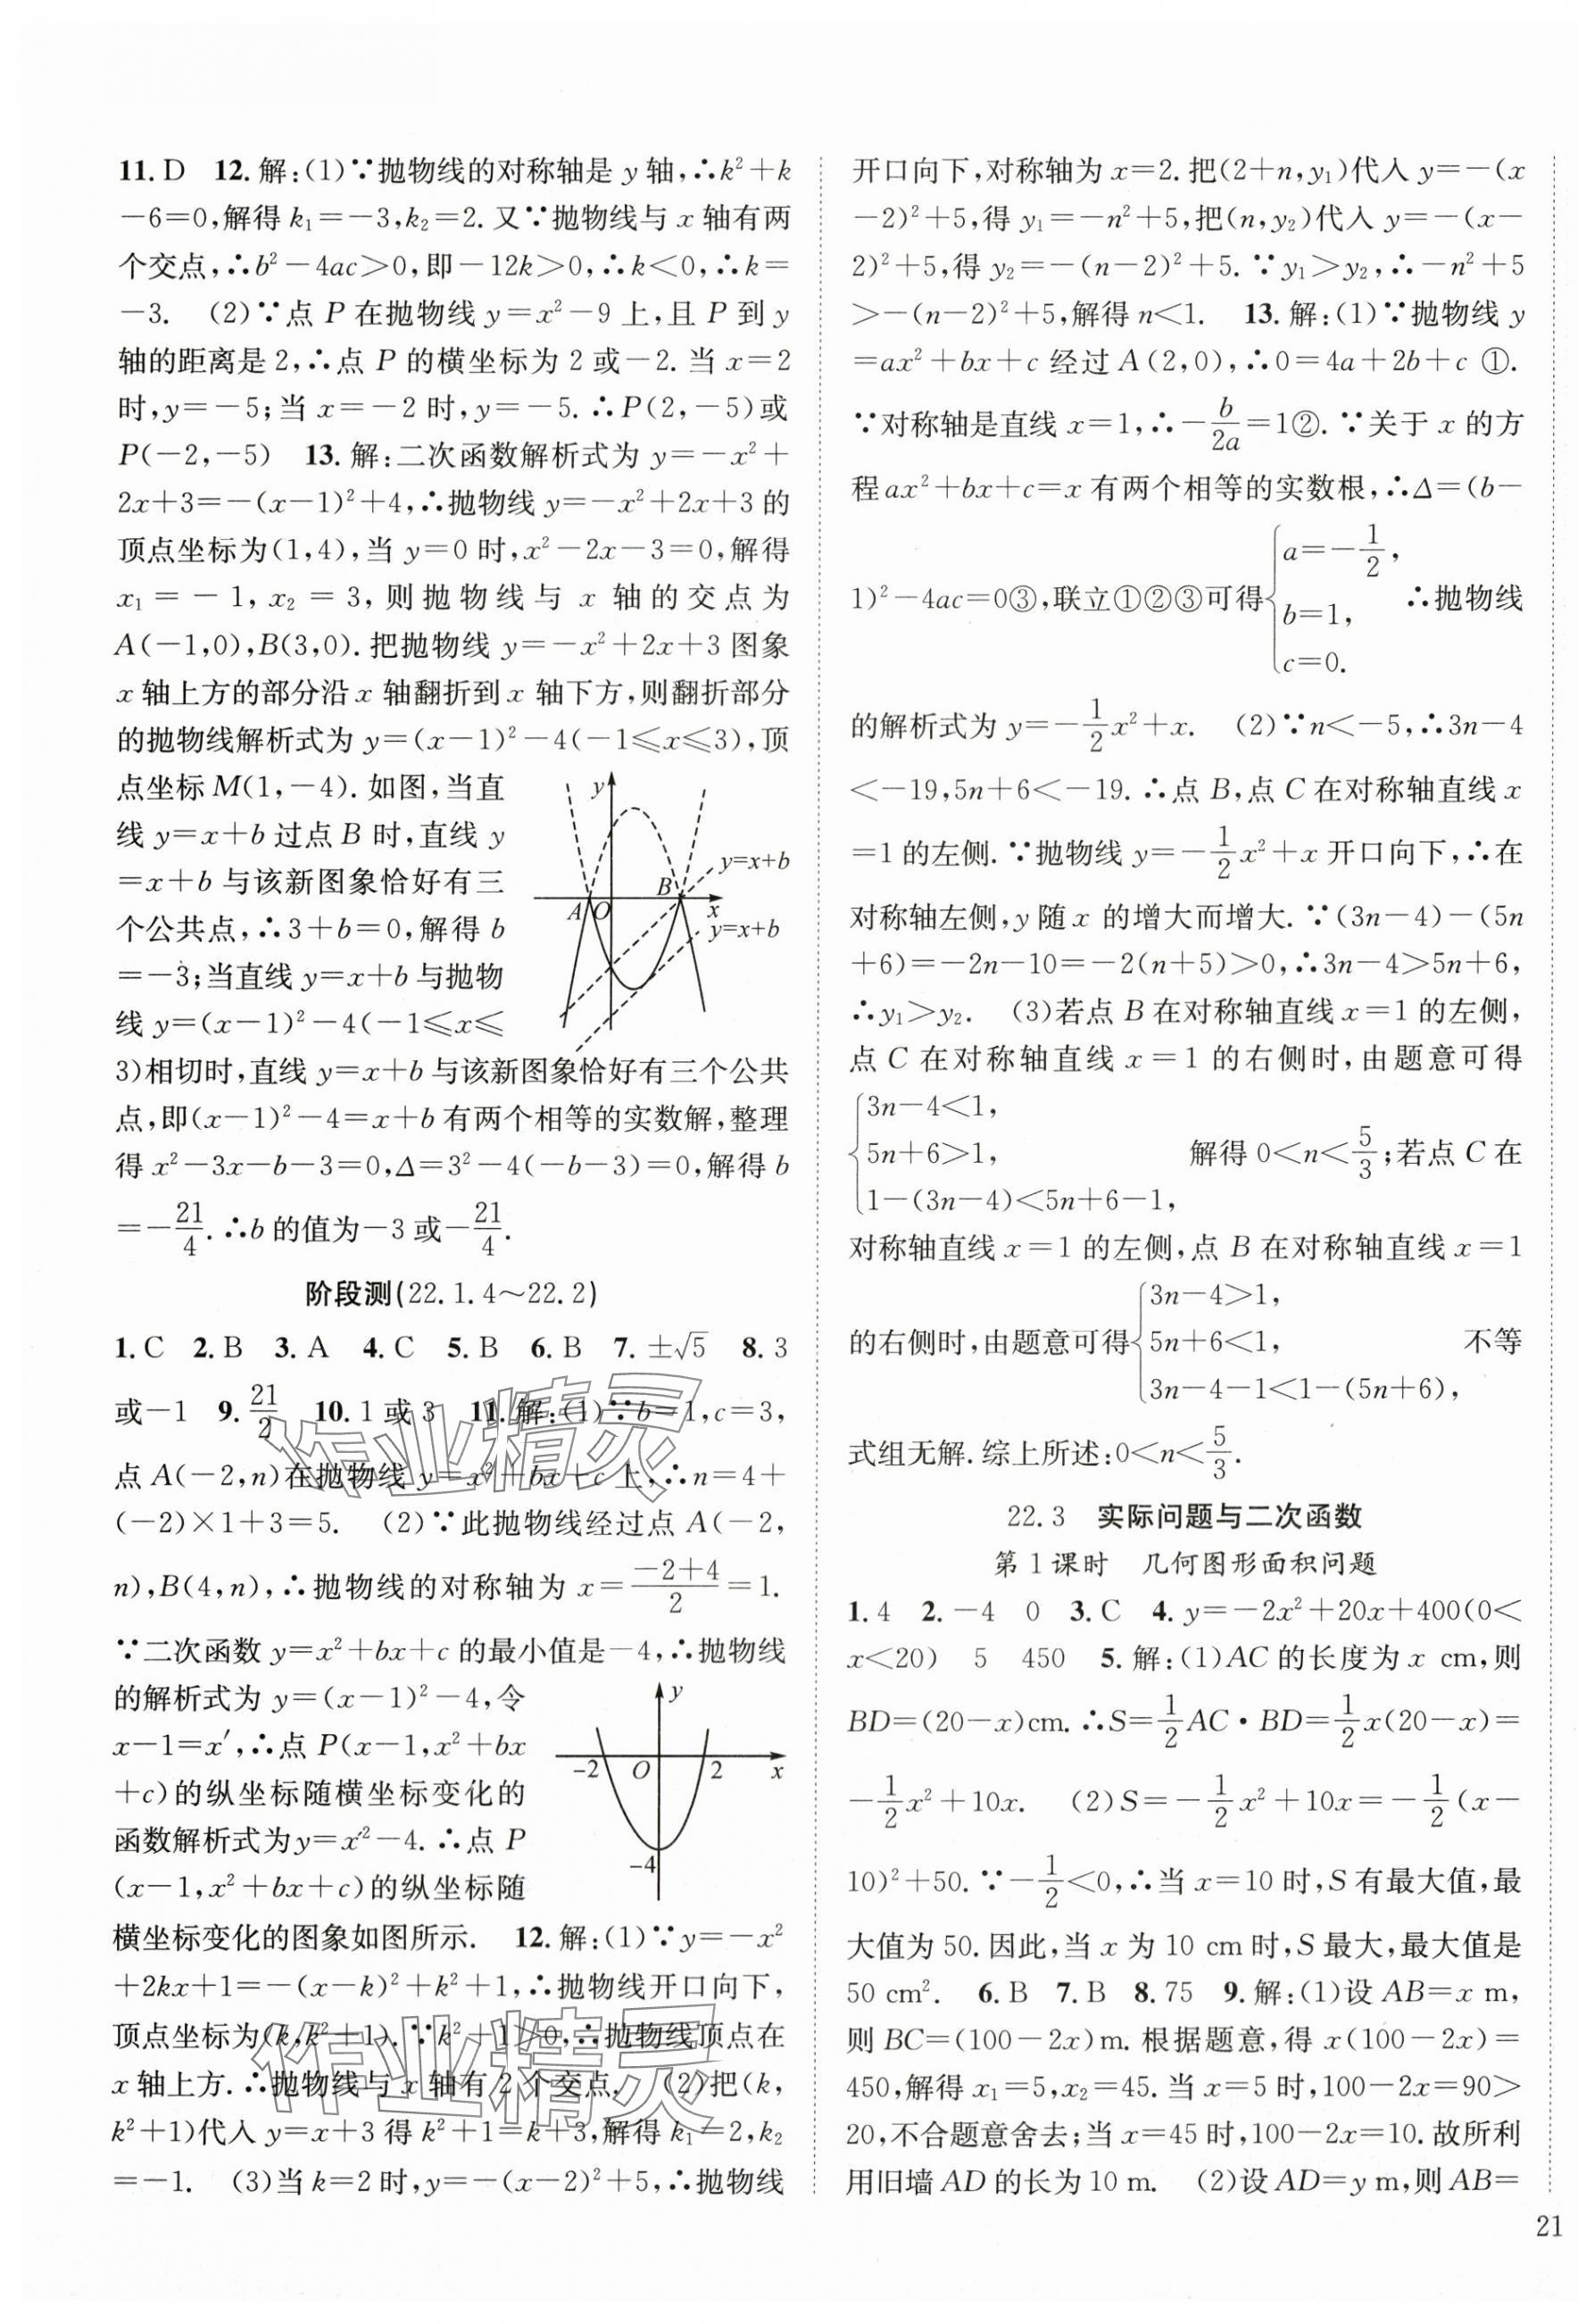 11. D　12. 解:(1)∵抛物线的对称轴是 y 轴,∴k²+k
-6=0,解得 k₁=-3,k₂=2. 又∵抛物线与 x 轴有两
个交点,∴b²-4ac>0,即-12k>0,∴k<0,∴k=
-3.　(2)∵点 P 在抛物线 y=x²-9 上,且 P 到 y
轴的距离是 2,∴点 P 的横坐标为 2 或-2. 当 x=2
时,y=-5;当 x=-2 时,y=-5. ∴P(2,-5)或
P(-2,-5)　13. 解:二次函数解析式为 y=-x²+
2x+3=-(x-1)²+4,∴抛物线 y=-x²+2x+3 的
顶点坐标为(1,4),当 y=0 时,x²-2x-3=0,解得
x₁=-1,x₂=3,则抛物线与 x 轴的交点为
A(-1,0),B(3,0). 把抛物线 y=-x²+2x+3 图象
x 轴上方的部分沿 x 轴翻折到 x 轴下方,则翻折部分
的抛物线解析式为 y=(x-1)²-4(-1≤x≤3),顶
点坐标 M(1,-4). 如图,当直
线 y=x+b 过点 B 时,直线 y
=x+b 与该新图象恰好有三
个公共点,∴3+b=0,解得 b
=-3;当直线 y=x+b 与抛物
线 y=(x-1)²-4(-1≤x≤
y
y=x+b
B
A O x
y=x+b
3)相切时,直线 y=x+b 与该新图象恰好有三个公共
点,即(x-1)²-4=x+b 有两个相等的实数解,整理
得 x²-3x-b-3=0,Δ=3²-4(-b-3)=0,解得 b
=-21/4. ∴b 的值为-3 或-21/4.
阶段测(22.1.4～22.2)
1. C　2. B　3. A　4. C　5. B　6. B　7. ±√5　8. 3
或-1　9. 21/2　10. 1 或 3　11. 解:(1)∵b=1,c=3,
点 A(-2,n)在抛物线 y=x²+bx+c 上,∴n=4+
(-2)×1+3=5.　(2)∵此抛物线经过点 A(-2,
n),B(4,n),∴抛物线的对称轴为 x=(-2+4)/2=1.
∵二次函数 y=x²+bx+c 的最小值是-4,∴抛物线
的解析式为 y=(x-1)²-4,令
x-1=x′,∴点 P(x-1,x²+bx
+c)的纵坐标随横坐标变化的
函数解析式为y=x²-4. ∴点 P
(x-1,x²+bx+c)的纵坐标随
y
-2 O 2 x
-4
横坐标变化的图象如图所示.　12. 解:(1)∵y=-x²
+2kx+1=-(x-k)²+k²+1,∴抛物线开口向下,
顶点坐标为(k,k²+1). ∵k²+1>0,∴抛物线顶点在
x 轴上方. ∴抛物线与 x 轴有 2 个交点.　(2)把(k,
k²+1)代入 y=x+3 得 k²+1=k+3,解得 k₁=2,k₂
=-1.　(3)当 k=2 时,y=-(x-2)²+5,∴抛物线
开口向下,对称轴为 x=2. 把(2+n,y₁)代入 y=-(x
-2)²+5,得 y₁=-n²+5,把(n,y₂)代入 y=-(x-
2)²+5,得 y₂=-(n-2)²+5. ∵y₁>y₂,∴-n²+5
>-(n-2)²+5,解得 n<1.　13. 解:(1)∵抛物线 y
=ax²+bx+c 经过 A(2,0),∴0=4a+2b+c ①.
∵对称轴是直线 x=1,∴-b/2a=1②. ∵关于 x 的方
程 ax²+bx+c=x 有两个相等的实数根,∴Δ=(b-
1)²-4ac=0③,联立①②③可得{a=-1/2, b=1, c=0. ∴抛物线
的解析式为 y=-1/2x²+x.　(2)∵n<-5,∴3n-4
<-19,5n+6<-19. ∴点 B,点 C 在对称轴直线 x
=1 的左侧. ∵抛物线 y=-1/2x²+x 开口向下,∴在
对称轴左侧,y 随 x 的增大而增大. ∵(3n-4)-(5n
+6)=-2n-10=-2(n+5)>0,∴3n-4>5n+6,
∴y₁>y₂.　(3)若点 B 在对称轴直线 x=1 的左侧,
点 C 在对称轴直线 x=1 的右侧时,由题意可得
{3n-4<1, 5n+6>1, 1-(3n-4)<5n+6-1, 解得 0<n<5/3;若点 C 在
对称轴直线 x=1 的左侧,点 B 在对称轴直线 x=1
的右侧时,由题意可得{3n-4>1, 5n+6<1, 3n-4-1<1-(5n+6), 不等
式组无解. 综上所述:0<n<5/3.
22.3　实际问题与二次函数
第 1 课时　几何图形面积问题
1. 4　2. -4　0　3. C　4. y=-2x²+20x+400(0<
x<20)　5　450　5. 解:(1)AC 的长度为 x cm,则
BD=(20-x)cm. ∴S=1/2AC·BD=1/2x(20-x)=
-1/2x²+10x.　(2)S=-1/2x²+10x=-1/2(x-
10)²+50. ∵-1/2<0,∴当 x=10 时,S 有最大值,最
大值为 50. 因此,当 x 为 10 cm 时,S 最大,最大值是
50 cm².　6. B　7. B　8. 75　9. 解:(1)设 AB=x m,
则 BC=(100-2x)m. 根据题意,得 x(100-2x)=
450,解得 x₁=5,x₂=45. 当 x=5 时,100-2x=90>
20,不合题意舍去;当 x=45 时,100-2x=10. 故所利
用旧墙 AD 的长为 10 m.　(2)设 AD=y m,则 AB=
21
作业精灵
作业精灵